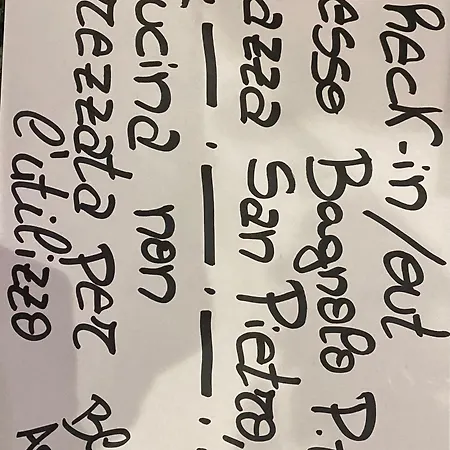 heck-in/out
esso Bagnolo P.
azza San Pietro,
ucina non
rezzata per
l'utilizzo